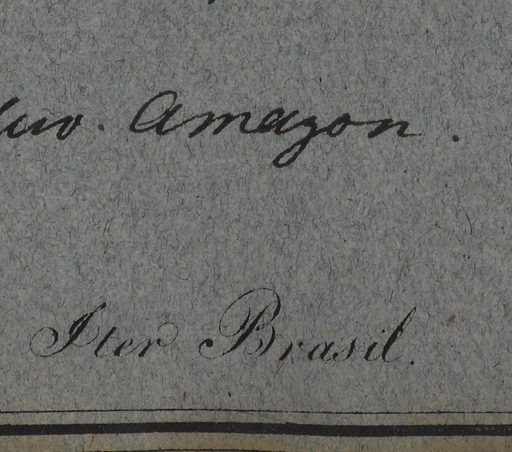 fluv. Amazon.
Iter Brasil.